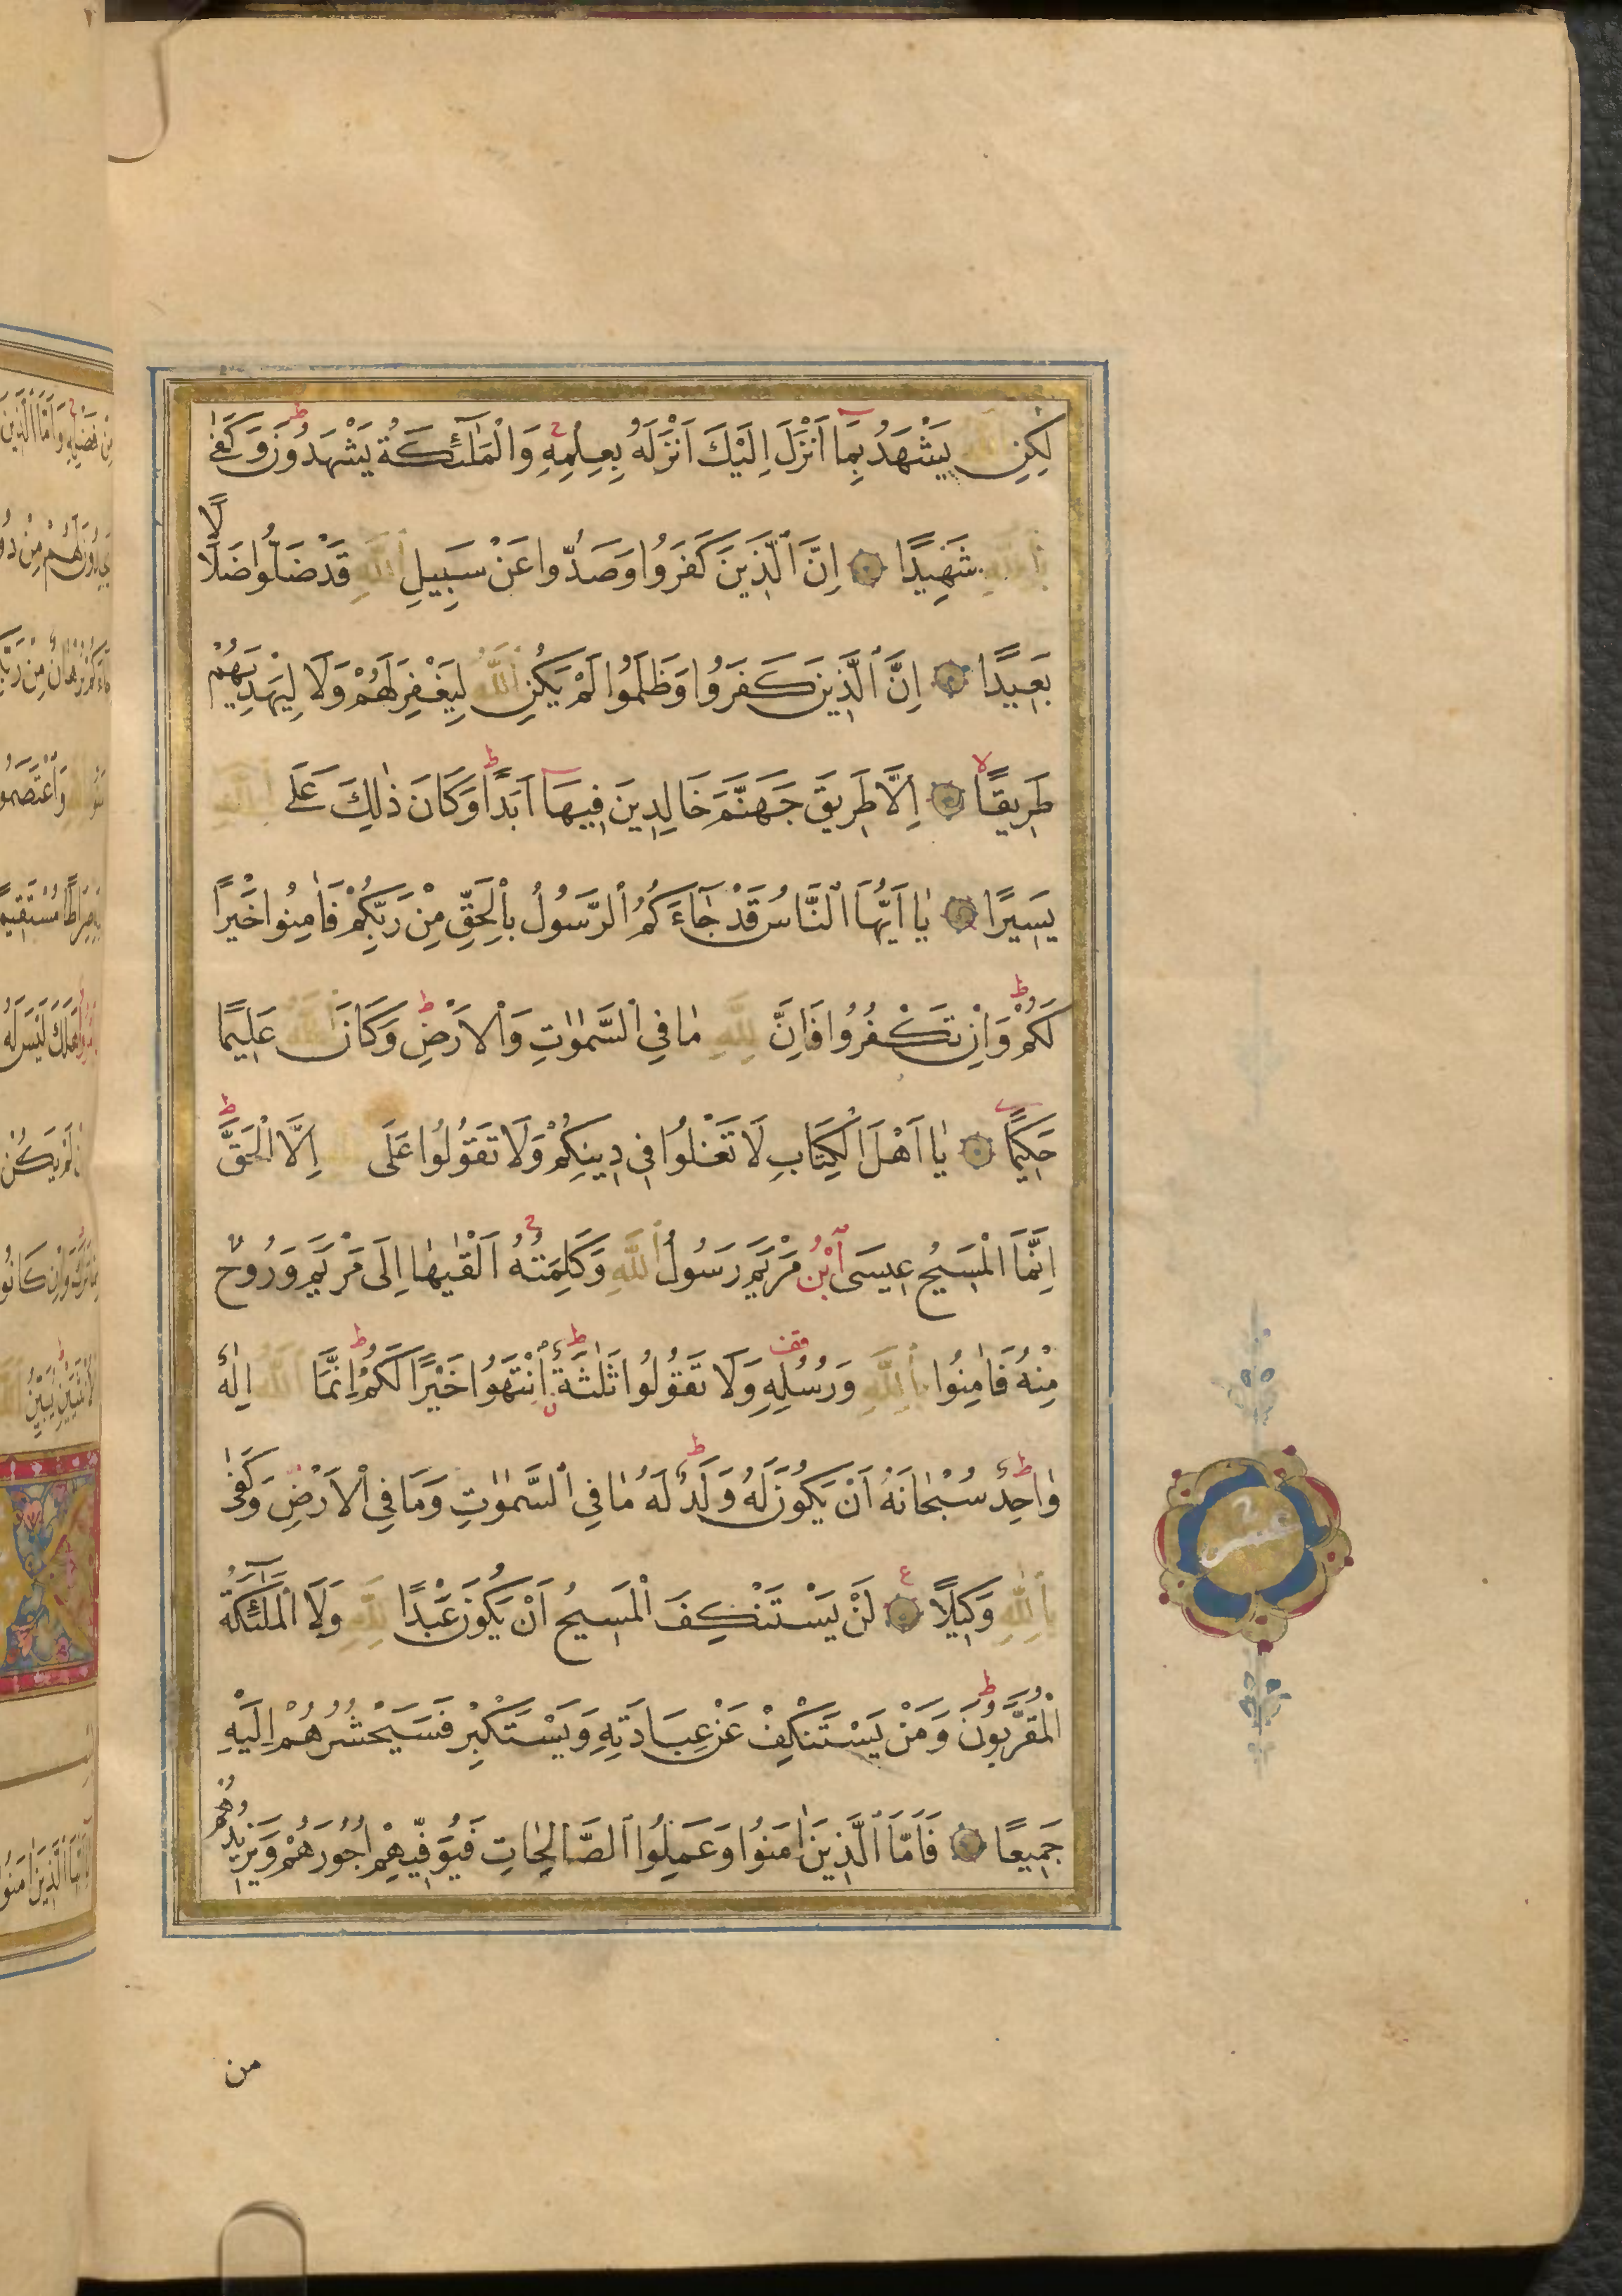 لٰكِنِ اللّٰهُ يَشْهَدُ بِمَا اَنْزَلَ اِلَيْكَ اَنْزَلَهُ بِعِلْمِهِ وَالْمَلٰٓئِكَةُ يَشْهَدُونَ وَكَفٰى
بِاللّٰهِ شَهِيدًا اِنَّ الَّذِينَ كَفَرُوا وَصَدُّوا عَنْ سَبِيلِ اللّٰهِ قَدْ ضَلُّوا ضَلَالًا
بَعِيدًا اِنَّ الَّذِينَ كَفَرُوا وَظَلَمُوا لَمْ يَكُنِ اللّٰهُ لِيَغْفِرَ لَهُمْ وَلَا لِيَهْدِيَهُمْ
طَرِيقًا اِلَّا طَرِيقَ جَهَنَّمَ خَالِدِينَ فِيهَا اَبَدًا وَكَانَ ذٰلِكَ عَلَى اللّٰهِ
يَسِيرًا يَا اَيُّهَا النَّاسُ قَدْ جَاءَكُمُ الرَّسُولُ بِالْحَقِّ مِنْ رَبِّكُمْ فَاٰمِنُوا خَيْرًا
لَكُمْ وَاِنْ تَكْفُرُوا فَاِنَّ لِلّٰهِ مَا فِي السَّمٰوٰتِ وَالْاَرْضِ وَكَانَ اللّٰهُ عَلِيمًا
حَكِيمًا يَا اَهْلَ الْكِتَابِ لَا تَغْلُوا فِي دِينِكُمْ وَلَا تَقُولُوا عَلَى اللّٰهِ اِلَّا الْحَقَّ
اِنَّمَا الْمَسِيحُ عِيسَى ابْنُ مَرْيَمَ رَسُولُ اللّٰهِ وَكَلِمَتُهُ اَلْقٰيهَا اِلَى مَرْيَمَ وَرُوحٌ
مِنْهُ فَاٰمِنُوا بِاللّٰهِ وَرُسُلِهِ وَلَا تَقُولُوا ثَلٰثَةٌ اِنْتَهُوا خَيْرًا لَكُمْ اِنَّمَا اللّٰهُ اِلٰهٌ
وَاحِدٌ سُبْحَانَهُ اَنْ يَكُونَ لَهُ وَلَدٌ لَهُ مَا فِي السَّمٰوٰتِ وَمَا فِي الْاَرْضِ وَكَفٰى
بِاللّٰهِ وَكِيلًا لَنْ يَسْتَنْكِفَ الْمَسِيحُ اَنْ يَكُونَ عَبْدًا لِلّٰهِ وَلَا الْمَلٰٓئِكَةُ
الْمُقَرَّبُونَ وَمَنْ يَسْتَنْكِفْ عَنْ عِبَادَتِهِ وَيَسْتَكْبِرْ فَسَيَحْشُرُهُمْ اِلَيْهِ
جَمِيعًا فَاَمَّا الَّذِينَ اٰمَنُوا وَعَمِلُوا الصَّالِحَاتِ فَيُوَفِّيهِمْ اُجُورَهُمْ وَيَزِيدُهُمْ
من
عشر